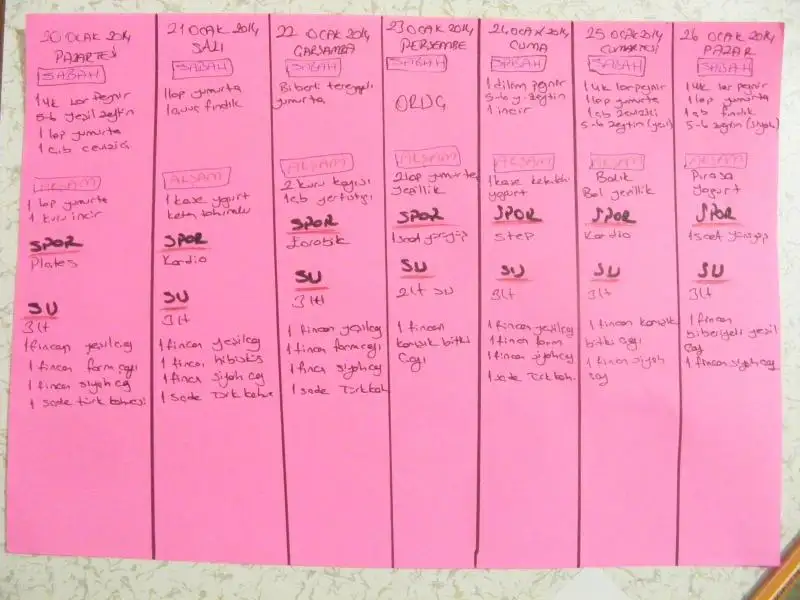 20 OCAK 2014
PAZARTESİ
SABAH
1 yk lor peynir
5-6 yeşil zeytin
1 lop yumurta
1 çb ceviziçi
AKŞAM
1 lop yumurta
1 kuru incir
SPOR
Plates
SU
3 lt
1 fincan yeşilçay
1 fincan formçayı
1 fincan siyah çay
1 sade türk kahvesi
21 OCAK 2014
SALI
SABAH
1 lop yumurta
1 avuç fındık
AKŞAM
1 kase yogurt
keten tohumlu
SPOR
Kardio
SU
3 lt
1 fincan yeşilçay
1 fincan hibisküs
1 fincan siyah çay
1 sade Türk kahve
22 OCAK 2014
ÇARŞAMBA
SABAH
Biberli tereyağlı
yumurta
AKŞAM
2 kuru kayısı
1 çb yerfıstığı
SPOR
Earobik
SU
3 lt
1 fincan yeşilçay
1 fincan formçayı
1 fincan siyah çay
1 sade Türk kah
23 OCAK 2014
PERŞEMBE
SABAH
ORUÇ
AKŞAM
2 lop yumurta
yeşillik
SPOR
1 saat yürüyüş
SU
2 lt su
1 fincan
karışık bitki
çayı
24 OCAK 2014
CUMA
SABAH
1 dilim peynir
5-6 y-zeytin
1 incir
AKŞAM
1 kase
yogurt
SPOR
Step
SU
3 lt
1 fincan yeşilçay
1 fincan form
1 fincan siyah çay
1 sade Türk kah.
25 OCAK 2014
CUMARTESİ
SABAH
1 yk lor peynir
1 lop yumurta
1 çb ceviziçi
5-6 zeytin (yeşil)
AKŞAM
Balık
Bol yeşillik
SPOR
Kardio
SU
3 lt
1 fincan karışık
bitki çayı
1 fincan siyah
çay
26 OCAK 2014
PAZAR
SABAH
1 yk lor peynir
1 lop yumurta
1 çb fındık
5-6 zeytin (siyah)
AKŞAM
Pırasa
yogurt
SPOR
1 saat yürüyüş
SU
3 lt
1 fincan
biberiyeli yeşil
çay
1 fincan siyah çay